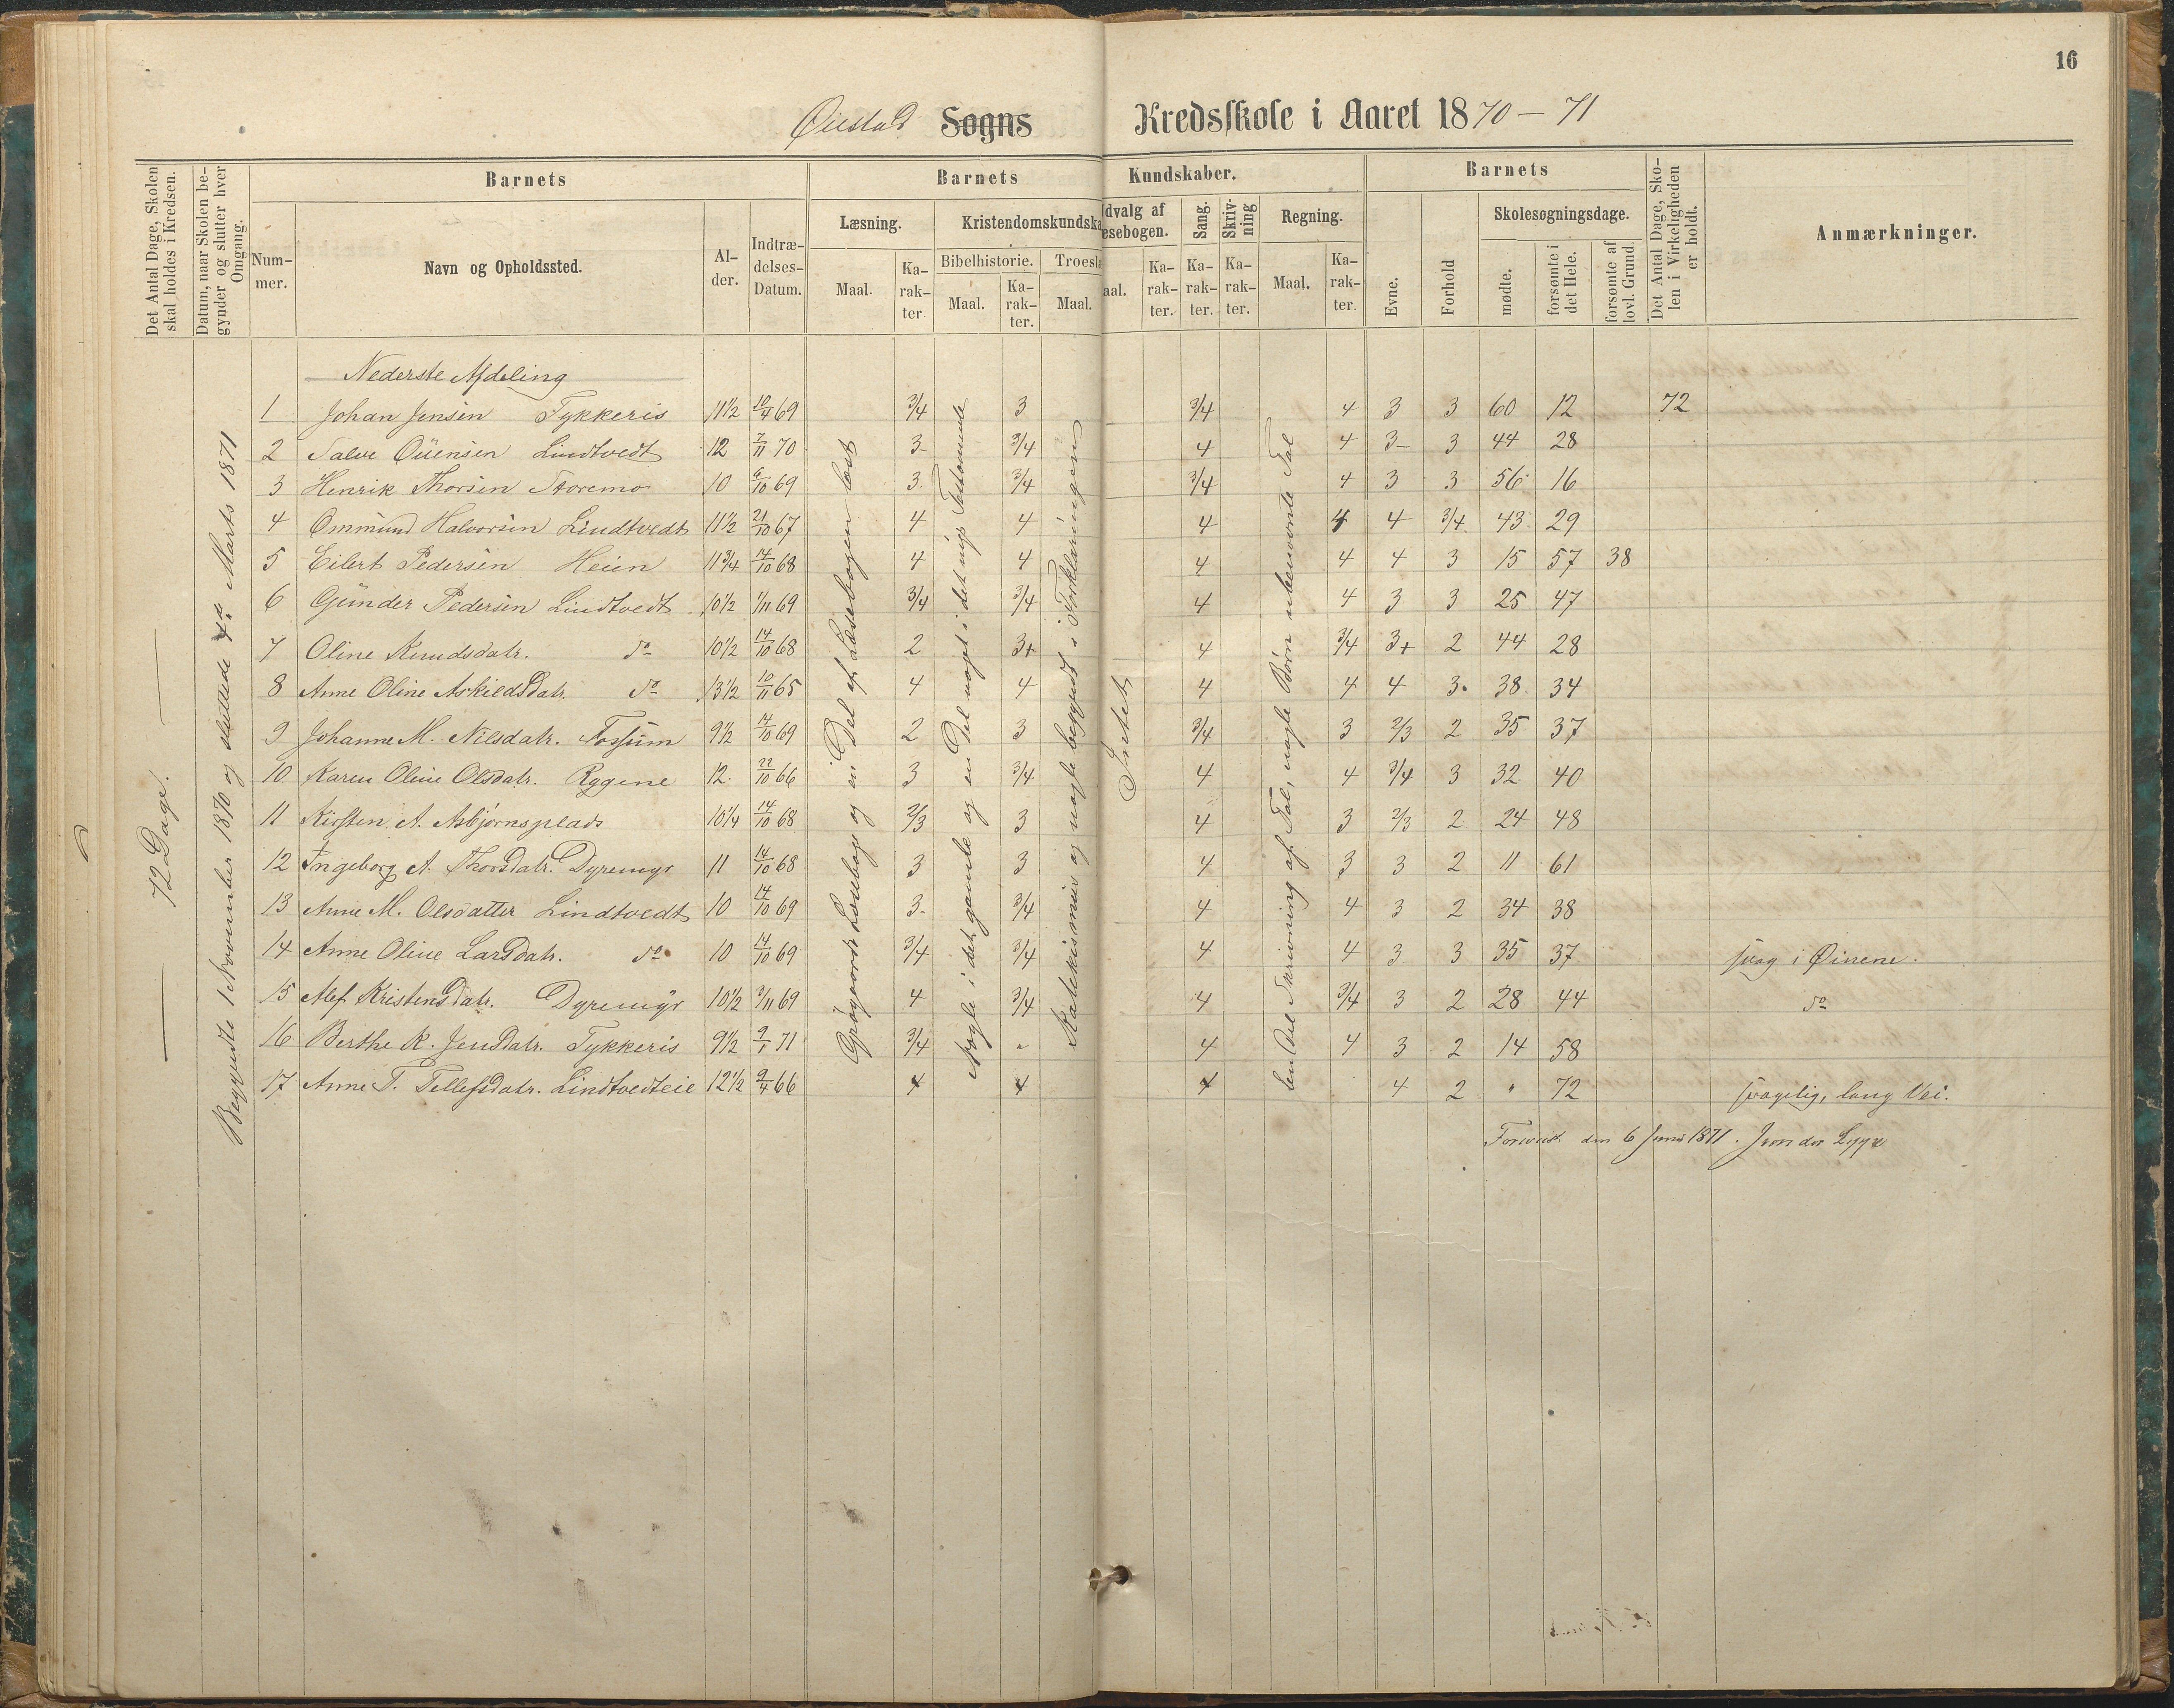 16
Øiestad Sogns Kredsskole i Aaret 1870–71
Det Antal Dage, Skolen skal holdes i Kredsen.
Datum, naar Skolen begynder og slutter hver Omgang.
Barnets
Nummer.
Navn og Opholdssted.
Alder.
Indtrædelses-Datum.
Barnets Kundskaber.
Læsning.
Maal.
Karakter
Kristendomskundska
Bibelhistorie.
Maal.
Karakter.
Troeslæ
Maal.
dvalg af
esebogen.
aal.
Karakter.
Sang.
Karakter.
Skrivning
Karakter.
Regning.
Maal.
Karakter.
Barnets
Evne.
Forhold
Skolesøgningsdage.
mødte.
forsømte i det Hele.
forsømte af lovl. Grund.
Det Antal Dage, Skolen i Virkeligheden er holdt.
Anmærkninger.
72 Dage.
Begyndte 1 November 1870 og sluttede 4de Marts 1871
Nederste Afdeling
1 Johan Jensen Tykkeris 11½ 10/4 69 3/4 3 3/4 4 3 3 60 12 72
2 Salve Øuensen Lindtvedt 12 7/11 70 3- 3/4 4 4 3- 3 44 28
3 Henrik Thorsen Storemo 10 6/10 69 3. 3/4 3/4 4 3 3 56 16
4 Ommund Halvorsen Lindtvedt 11½ 21/10 67 4 4 4 4 4 3/4 43 29
5 Eilert Pedersen Heien 11¾ 14/10 68 4 4 4 4 4 3 15 57 38
6 Gunder Pedersen Lindtvedt 10½ 1/11 69 3/4 3/4 4 4 3 3 25 47
7 Oline Knudsdatr. do 10½ 14/10 68 2 3+ 4 3/4 3+ 2 44 28
8 Anne Oline Askildsdatr. do 13½ 10/11 65 4 4 4 4 4 3. 38 34
9 Johanne M. Nilsdatr. Fossum 9½ 14/10 69 2 3 3/4 3 2/3 2 35 37
10 Karen Oline Olsdatr. Rygene 12. 22/10 66 3 3/4 4 4 3/4 3 32 40
11 Kirsten A. Asbjørnsplads 10¼ 14/10 68 2/3 3 4 3 2/3 2 24 48
12 Ingeborg A. Thorsdatr. Dyremyr 11 14/10 68 3 3 4 3 3 2 11 61
13 Anne M. Olsdatter Lindtvedt 10 14/10 69 3- 3/4 4 4 3 2 34 38
14 Anne Oline Larsdatr. do 10 14/10 69 3/4 3/4 4 4 3 3 35 37 svag i Øinene.
15 Alef Kristensdatr. Dyremyr 10½ 3/11 69 4 3/4 4 3/4 3 2 28 44 do
16 Berthe K. Jensdatr. Tykkeris 9½ 9/1 71 3/4 " 4 4 3 2 14 58
17 Anne T. Tellefsdatr. Lindtvedteie 12½ 9/4 66 4 4 4 4 2 " 72 svagelig, lang Vei.
Læsebog og en Del af Læsebogen læst
Nogle i det gamle og en Del noget i det nye Testamente
Katekismus og nogle begyndt i Forklaringen
Intet
en Del Skrivning af Tal, nogle Børn ubenævnte Tal
den 6 Juni 1871.